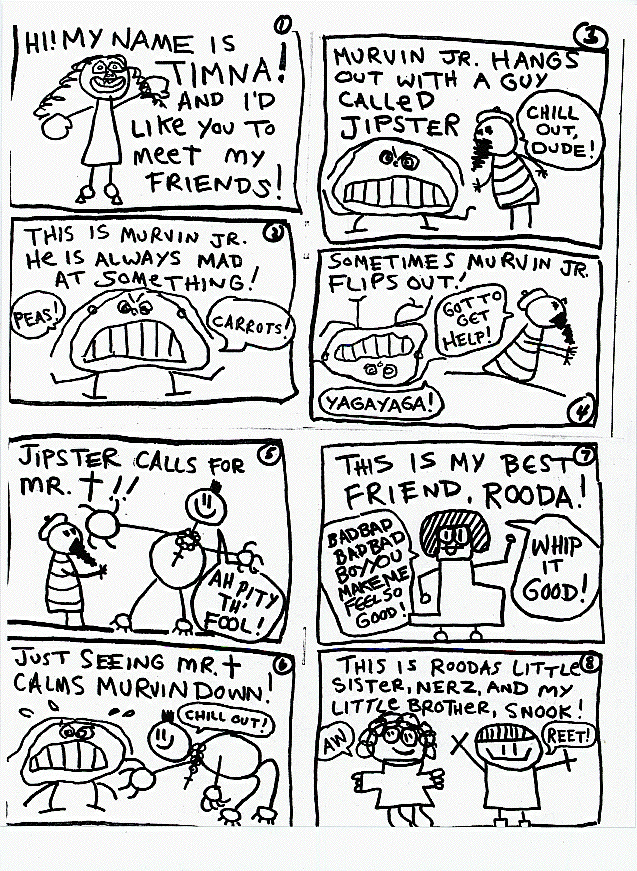 1
HI! MY NAME IS
TIMNA!
AND I'D
LIKE YOU TO
MEET MY
FRIENDS!
2
THIS IS MURVIN JR.
HE IS ALWAYS MAD
AT SOMETHING!
PEAS!
CARROTS!
3
MURVIN JR. HANGS
OUT WITH A GUY
CALLED
JIPSTER
CHILL
OUT,
DUDE!
SOMETIMES MURVIN JR.
FLIPS OUT!
GOT TO
GET
HELP!
YAGAYAGA!
4
5
JIPSTER CALLS FOR
MR. T!!
AH PITY
TH'
FOOL!
6
JUST SEEING MR. T
CALMS MURVIN DOWN!
CHILL OUT!
7
THIS IS MY BEST
FRIEND, ROODA!
BADBAD
BADBAD
BOY YOU
MAKE ME
FEEL SO
GOOD!
WHIP
IT
GOOD!
8
THIS IS ROODAS LITTLE
SISTER, NERZ, AND MY
LITTLE BROTHER, SNOOK!
AW
REET!